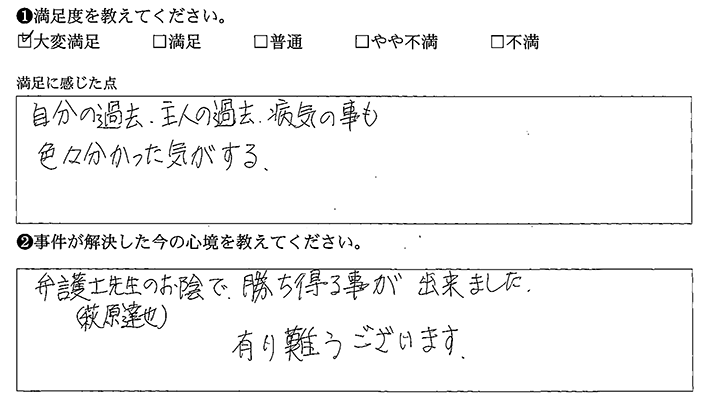 ❶満足度を教えてください。
☑大変満足 □満足 □普通 □やや不満 □不満
満足に感じた点
自分の過去、主人の過去、病気の事も
色々分かった気がする、
❷事件が解決した今の心境を教えてください。
弁護士先生のお陰で、勝ち得る事が出来ました、
(萩原達也)
有り難うございます、